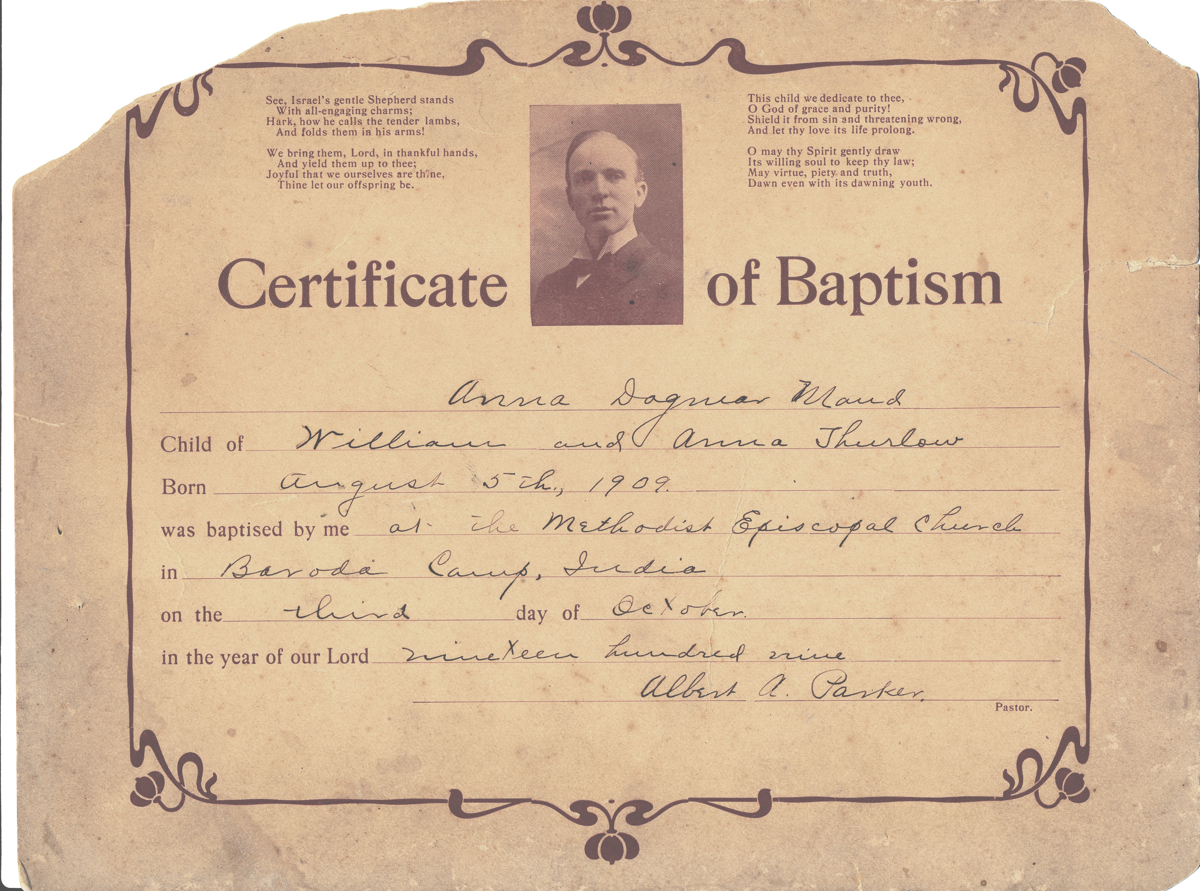 See, Israel's gentle Shepherd stands
With all-engaging charms;
Hark, how he calls the tender lambs,
And folds them in his arms!
We bring them, Lord, in thankful hands,
And yield them up to thee;
Joyful that we ourselves are thine,
Thine let our offspring be.
This child we dedicate to thee,
O God of grace and purity!
Shield it from sin and threatening wrong,
And let thy love its life prolong.
O may thy Spirit gently draw
Its willing soul to keep thy law;
May virtue, piety and truth,
Dawn even with its dawning youth.
Certificate of Baptism
Anna Dagmar Maud
Child of William and Anna Thurlow
Born August 5th, 1909.
was baptised by me at the Methodist Episcopal Church
in Baroda Camp, India
on the third day of October.
in the year of our Lord nineteen hundred nine
Albert A. Parker.
Pastor.